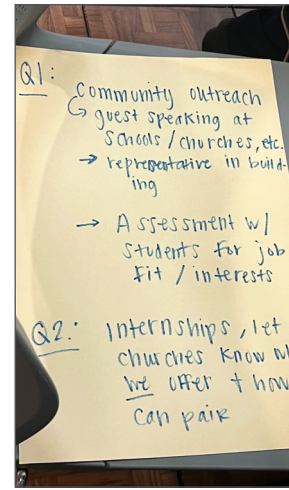 Q1: Community outreach
↳ guest speaking at
schools/churches, etc.
→ representative in build-
ing
→ Assessment w/
students for job
fit / interests
Q2: Internships, let
churches know w
we offer + how
can pair